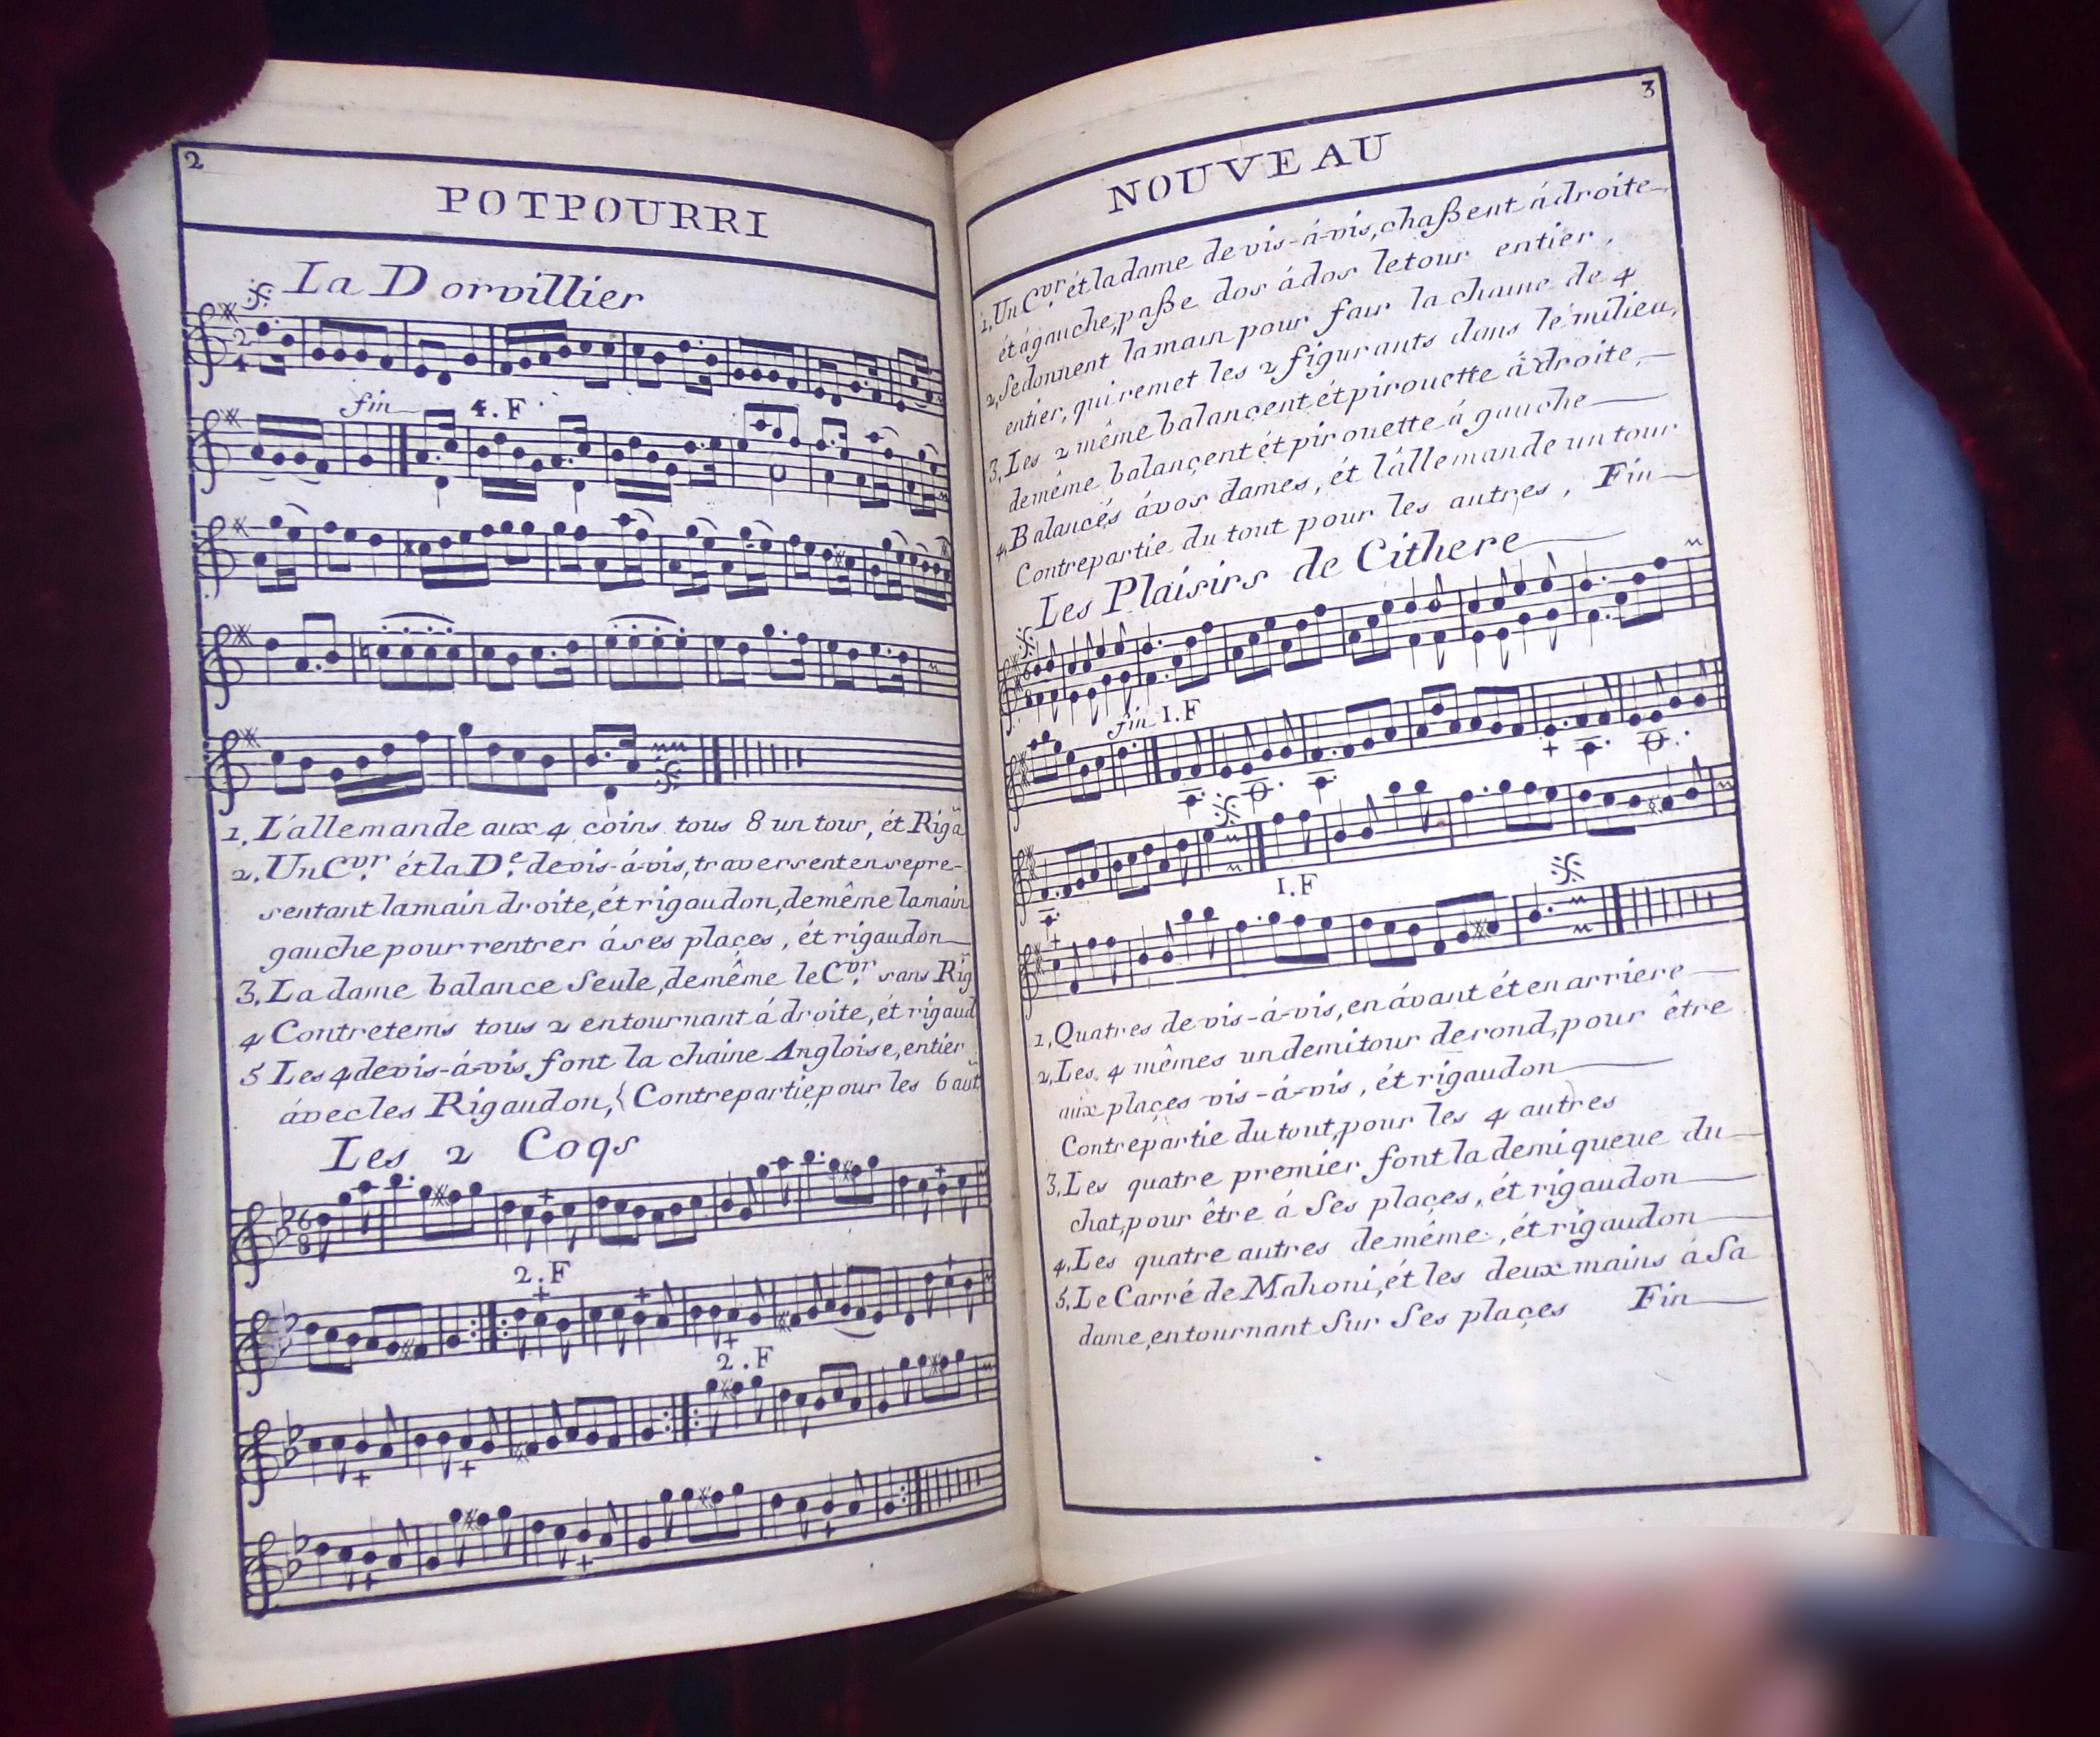 2
POTPOURRI
La Dorvillier
2
4
fin
4.F
1, L'allemande aux 4 coins tous 8 un tour, ét Rigã
2, Un Cvr. ét la De. de vis-á-vis, traversent en se pre-
sentant la main droite, ét rigaudon, demême la main
gauche pour rentrer á ses plaçes, ét rigaudon
3, La dame balance Seule, demême le Cvr. sans Rig̃
4 Contretems tous 2 en tournant á droite, ét rigaud
5 Les 4 de vis-á-vis font la chaine Angloise, entier
ávec les Rigaudon, { Contrepartie pour les 6 aut̃
Les 2 Coqs
6
8
2.F
2.F
3
NOUVEAU
1, Un Cvr. ét la dame de vis-á-vis, chaßent á droite
ét á gauche, paße dos á dos le tour entier,
2, Se donnent la main pour fair la chaine de 4
entier, qui remet les 2 figurants dans le milieu,
3, Les 2 même balançent ét pirouette á droite,
demême balançent ét pirouette á gauche
4, Balancés ávos dames, ét l'allemande un tour
Contrepartie du tout pour les autres, Fin
Les Plaisirs de Cithere
6
8
fin 1.F
1.F
1, Quatres de vis-á-vis, en ávant ét en arriere
2, Les 4 mêmes un demi tour de rond, pour être
aux plaçes vis-á-vis, ét rigaudon
Contrepartie du tout, pour les 4 autres
3, Les quatre premier font la demi queue du
chat, pour être á Ses plaçes, ét rigaudon
4, Les quatre autres demême, ét rigaudon
5, Le Carré de Mahoni, ét les deux mains á Sa
dame, en tournant Sur Ses plaçes Fin